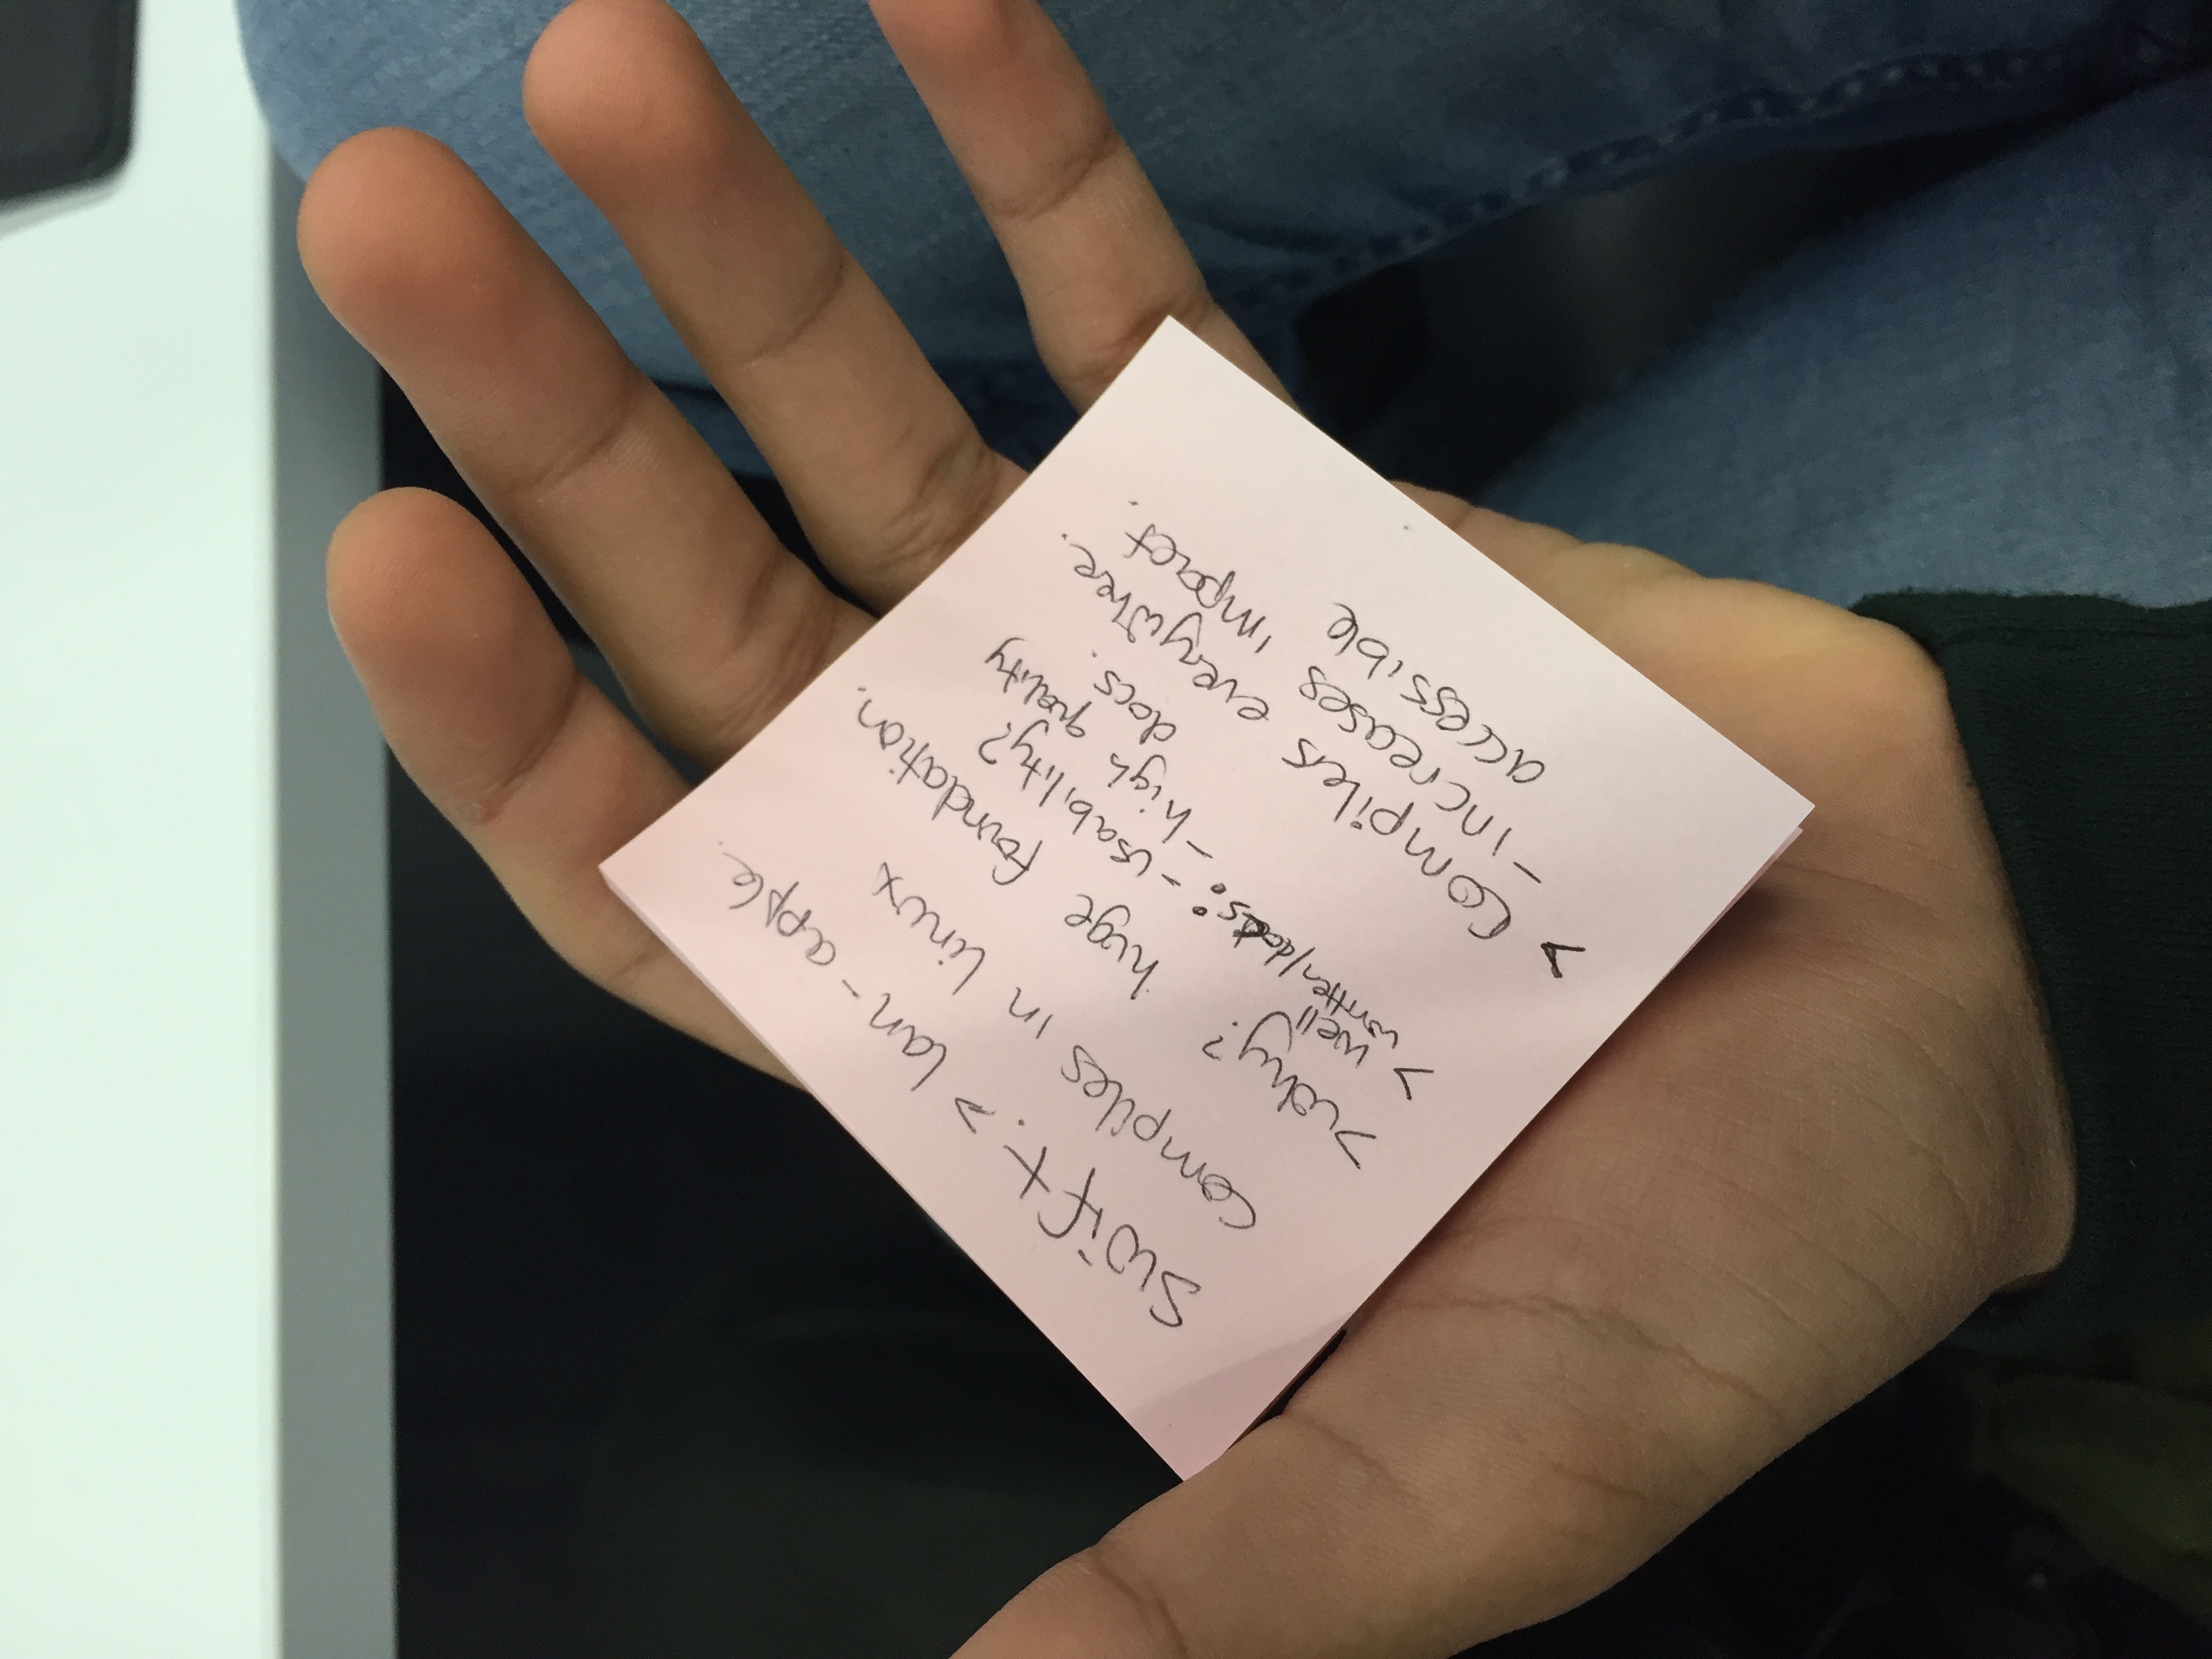 Swift.> lan - apple.
compiles in linux
>why? huge foundation.
> well written/docs: - usability?
- high quality docs.
> compilers everywhere.
- increases impact.
accessible